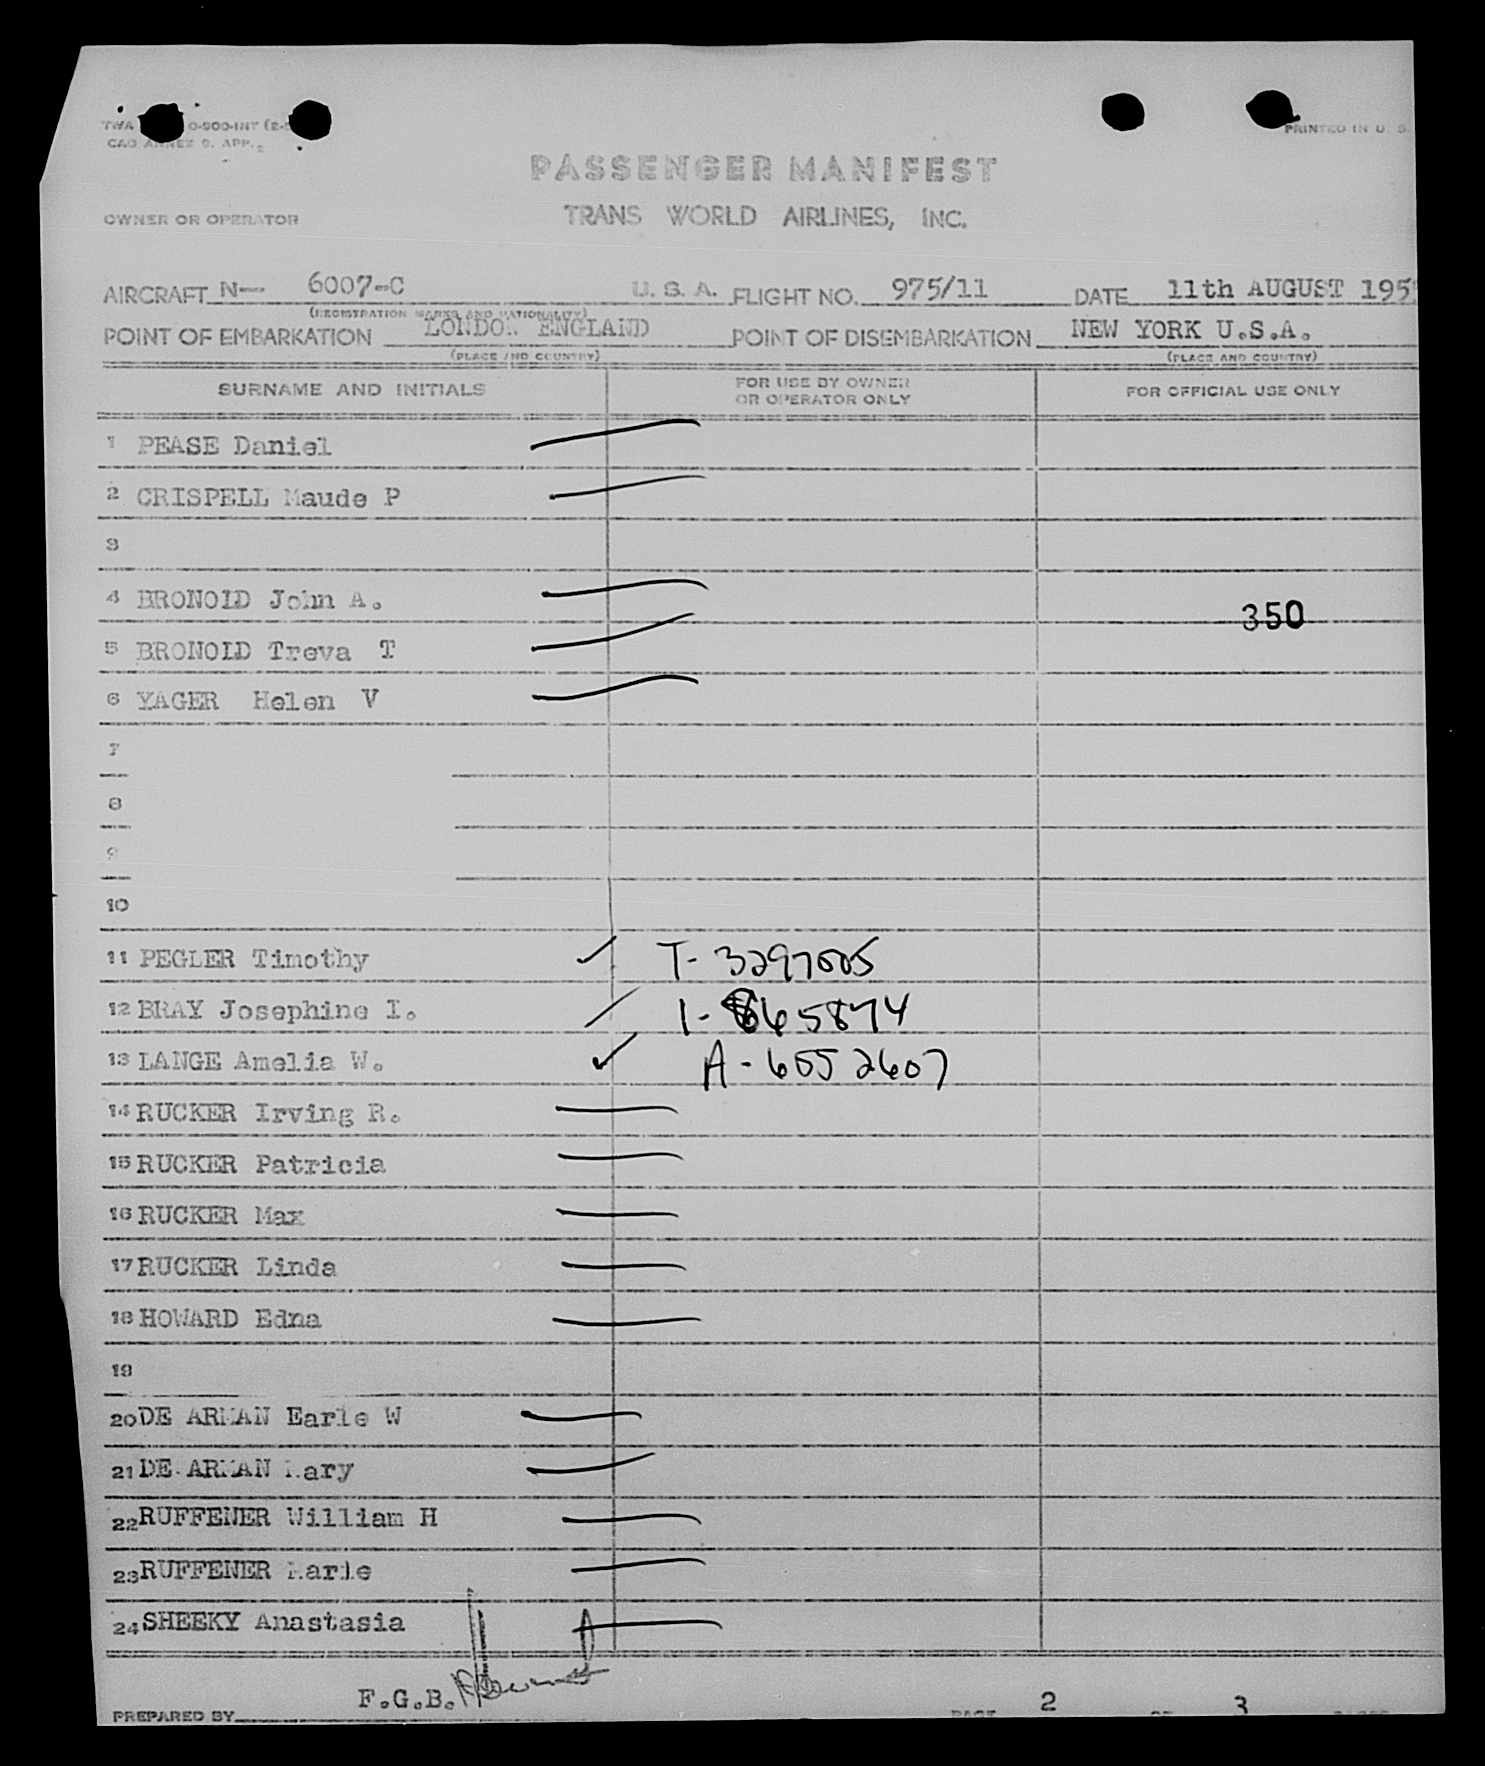 TWA 0-500-INT (2-5
CAO ANNEX 9. APP. 2
PRINTED IN U. S.
PASSENGER MANIFEST
OWNER OR OPERATOR TRANS WORLD AIRLINES, INC.
AIRCRAFT N— 6007-C U. S. A. FLIGHT NO. 975/11 DATE 11th AUGUST 195
(REGISTRATION MARKS AND NATIONALITY)
POINT OF EMBARKATION LONDON ENGLAND POINT OF DISEMBARKATION NEW YORK U.S.A.
(PLACE AND COUNTRY) (PLACE AND COUNTRY)
SURNAME AND INITIALS FOR USE BY OWNER OR OPERATOR ONLY FOR OFFICIAL USE ONLY
1 PEASE Daniel
2 CRISPELL Maude P
3
4 BRONOID John A.
350
5 BRONOID Treva T
6 YAGER Helen V
7
8
9
10
11 PEGLER Timothy T-
12 BRAY Josephine I. 1-
13 LANGE Amelia W. A-6552607
14 RUCKER Irving R.
15 RUCKER Patricia
16 RUCKER Max
17 RUCKER Linda
18 HOWARD Edna
19
20 DE ARMAN Earle W
21 DE ARMAN Mary
22 RUFFENER William H
23 RUFFENER Marie
24 SHEEKY Anastasia
PREPARED BY F.G.B. PAGE 2 OF 3 PAGES